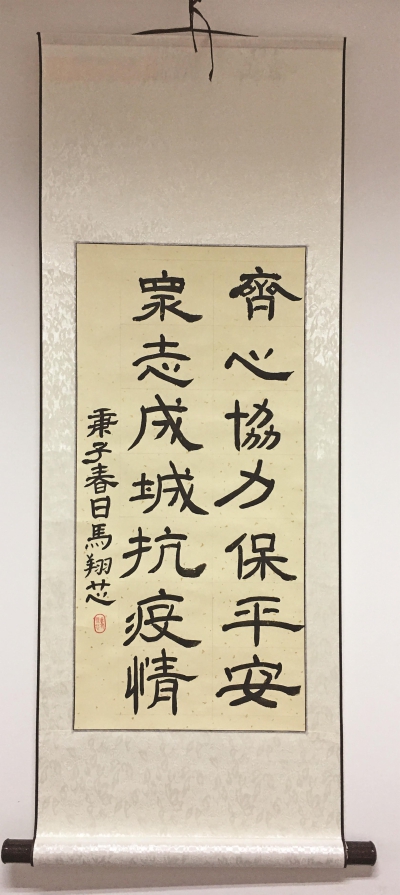 齊心協力保平安
眾志成城抗疫情
庚子春日馬翔芯